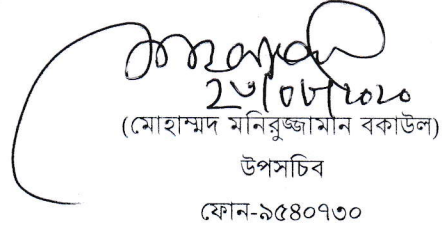 ২৬/০৮/২০২০
(মোহাম্মদ মনিরুজ্জামান বকাউল)
উপসচিব
ফোন-৯৫৪০৭৩০